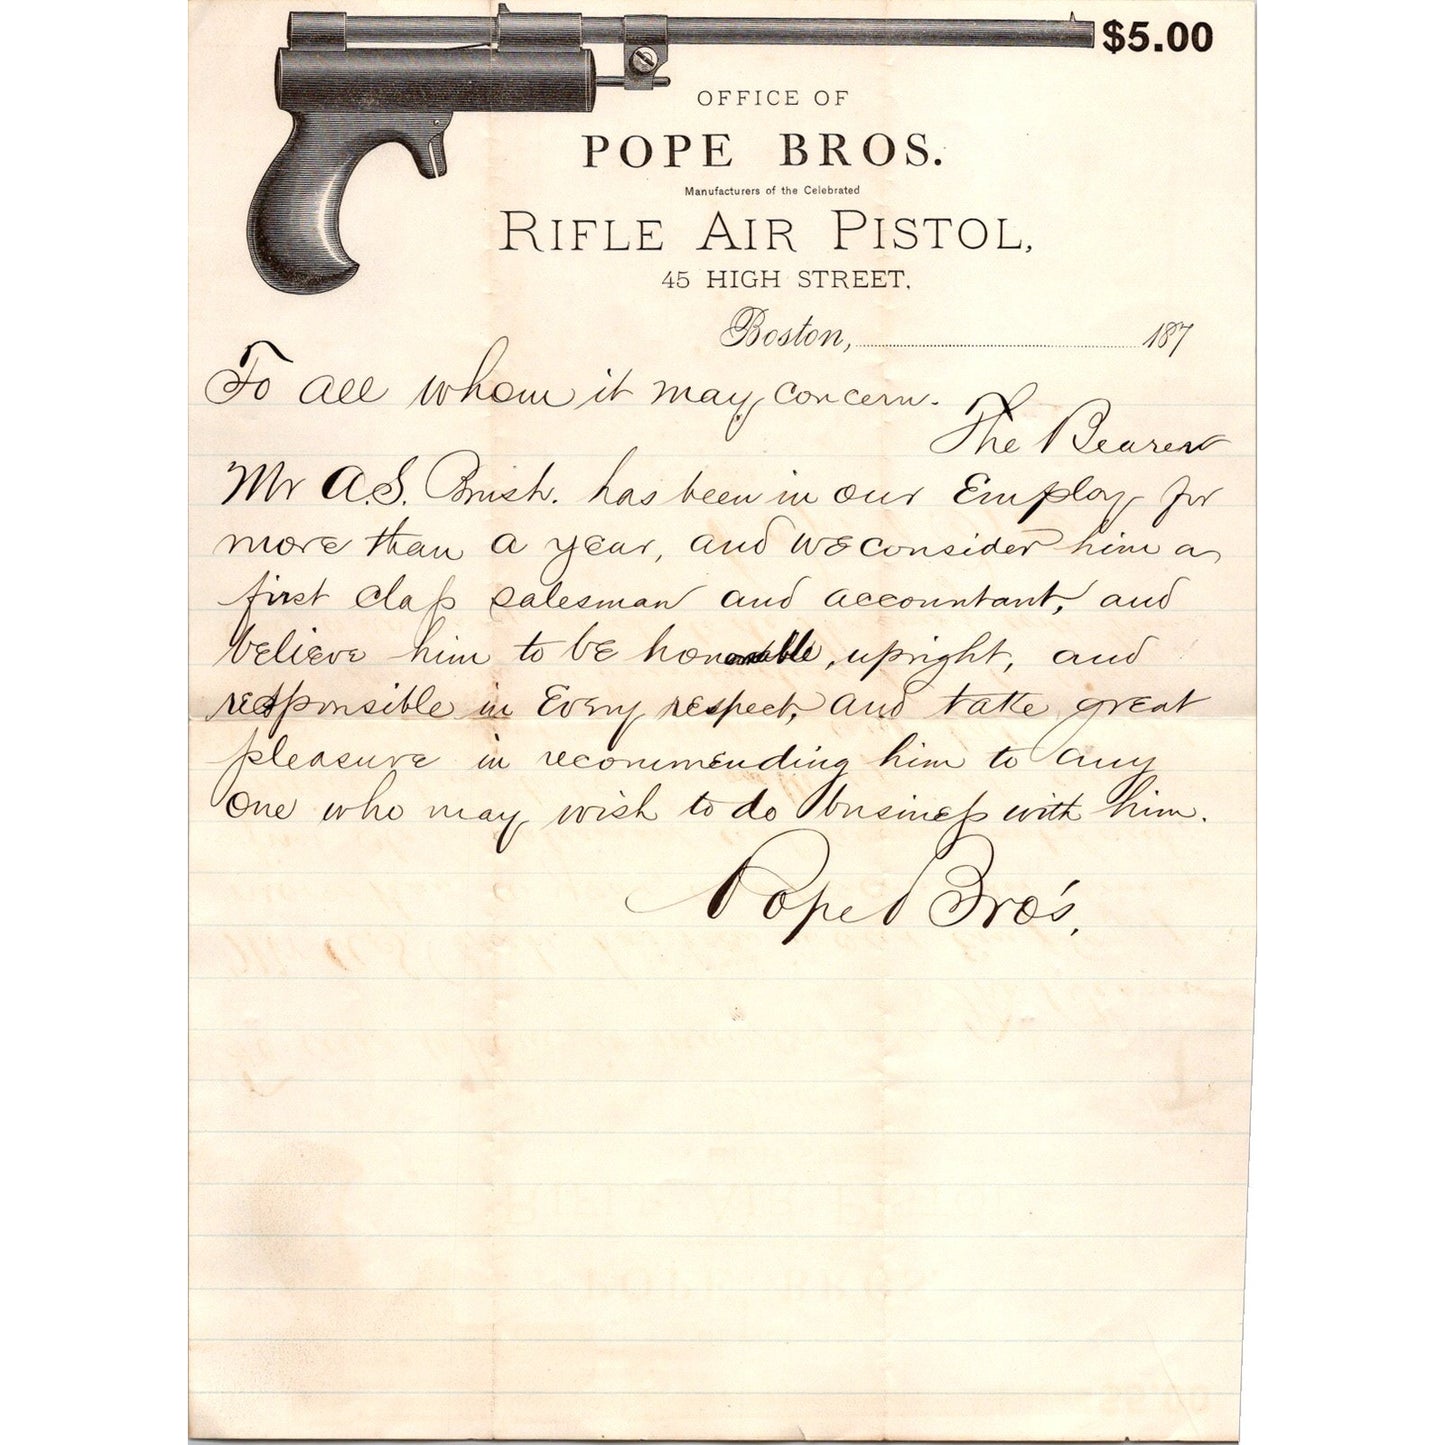 $5.00
OFFICE OF
POPE BROS.
Manufacturers of the Celebrated
RIFLE AIR PISTOL,
45 HIGH STREET.
Boston, 187
To all whom it may concern.
The Bearer
Mr A.S. has been in our Employ for
more than a year, and we consider him a
first class salesman and accountant, and
believe him to be honorable, upright, and
responsible in Every respect, and take great
pleasure in recommending him to any
one who may wish to do business with him.
Pope Bro's.